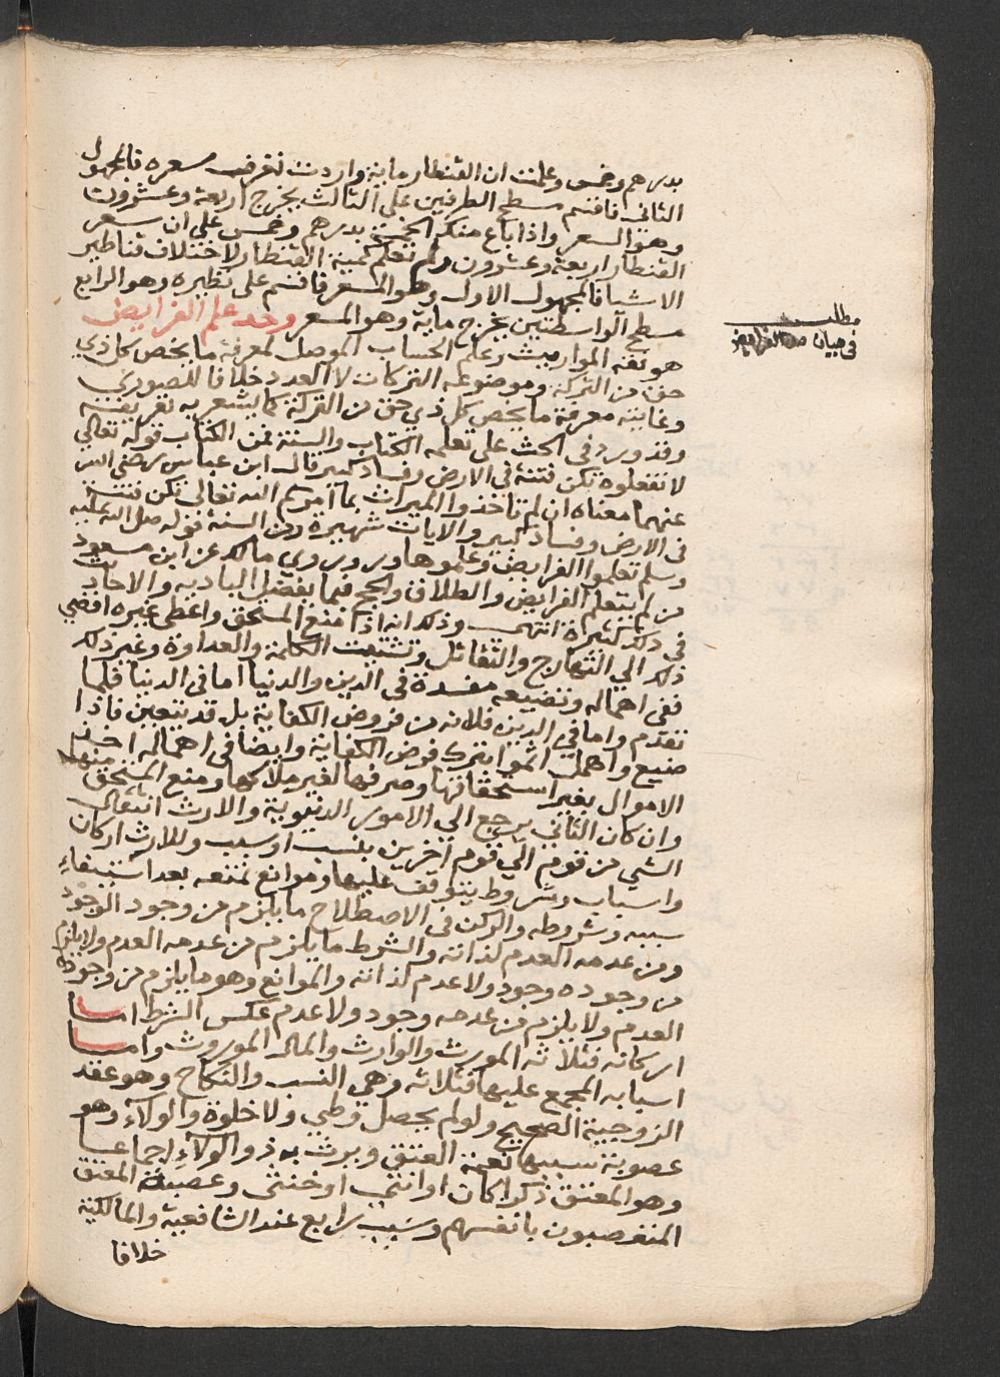 بدرهم وخمس وعلمت ان القنطار ماية واردت تعرف سعره فالمجهول
الثاني فاقسم مسطح الطرفين على الثالث يخرج اربعة وعشرون
وهو السعر واذا باع منه الخمسة بدرهم وخمس علي ان سعر
القنطار اربعة وعشرون ولم تعلم كمية القنطار لاختلاف قناطير
الاشيا فالمجهول الاول وهو المسعر فاقسم على نظيره وهو الرابع
مسطح الواسطتين يخرج ماية وهو المسعر وحد علم الفرايض
هو فقه المواريث وعلم الحساب الموصل لمعرفة ما يخص كل ذي
حق من التركة وموضوعه التركات لا العدد خلافا للصوري
وغايته معرفة ما يخص كل ذي حق من التركة كما يشعر به تعريفه
وقد ورد في الحث على تعلمه الكتاب والسنة فمن الكتاب قوله تعالي
لا تفعلوه تكن فتنة في الارض وفساد كبير قال ابن عباس رضي الله
عنهما معناه ان لم تاخذوا الميراث بما امركم الله تعالى تكن فتنة
في الارض وفساد كبير والايات شهيرة ومن السنة قوله صلى الله عليه
وسلم تعلموا الفرايض وعلموها وروي مالك عن ابن مسعود
من لم يتعلم الفرايض والطلاق والحج فبما يفضل البادية والاحاديث
في ذلك كثيرة انتهى وذلك انه اذا منع المستحق واعطي غيره افضي
ذلك الي التهارج والتقاتل وتشتيت الكلمة والعداوة وغير ذلك
ففي اهماله وتضييعه مفسدة في الدين والدنيا اما في الدنيا فلما
تقدم واما في الدين فلانه من فروض الكفاية بل قد يتعين فاذا
ضيع واهمل اثموا بترك فرض الكفاية وايضا في اهماله اخذ
الاموال بغير استحقاقها وصرفها لغير ملاكها ومنع المستحق منها
وان كان الثاني يرجع الي الامور الدنيوية والارث انتقال
الشي من قوم الي قوم اخرين بنسب او سبب وللارث اركان
واسباب وشروط يتوقف عليها وموانع تمنعه بعد استيفاء
سببه وشروطه والركن في الاصطلاح ما يلزم من وجوده الوجود
ومن عدمه العدم لذاته والشرط ما يلزم من عدمه العدم ولا يلزم
من وجوده وجود ولا عدم لذاته والموانع وهو ما يلزم من وجوده
العدم ولا يلزم من عدمه وجود ولا عدم عكس الشرط اما
اركانه فثلاثه المورث والوارث والمال الموروث واما
اسبابه المجمع عليها فثلاثه وهي النسب والنكاح وهو عقد
الزوجية الصحيح ولو لم يحصل وطي ولا خلوة والولاء وهو
عصوبة سببها نعمة العتق ويرث به ذو الولاء اجماعا
وهو المعتق ذكرا كان او انثي او خنثى وعصبة المعتق
المتعصبون بانفسهم وسبب رابع عند الشافعية والمالكية
خلافا
مطلب
في بيان حد الفرايض